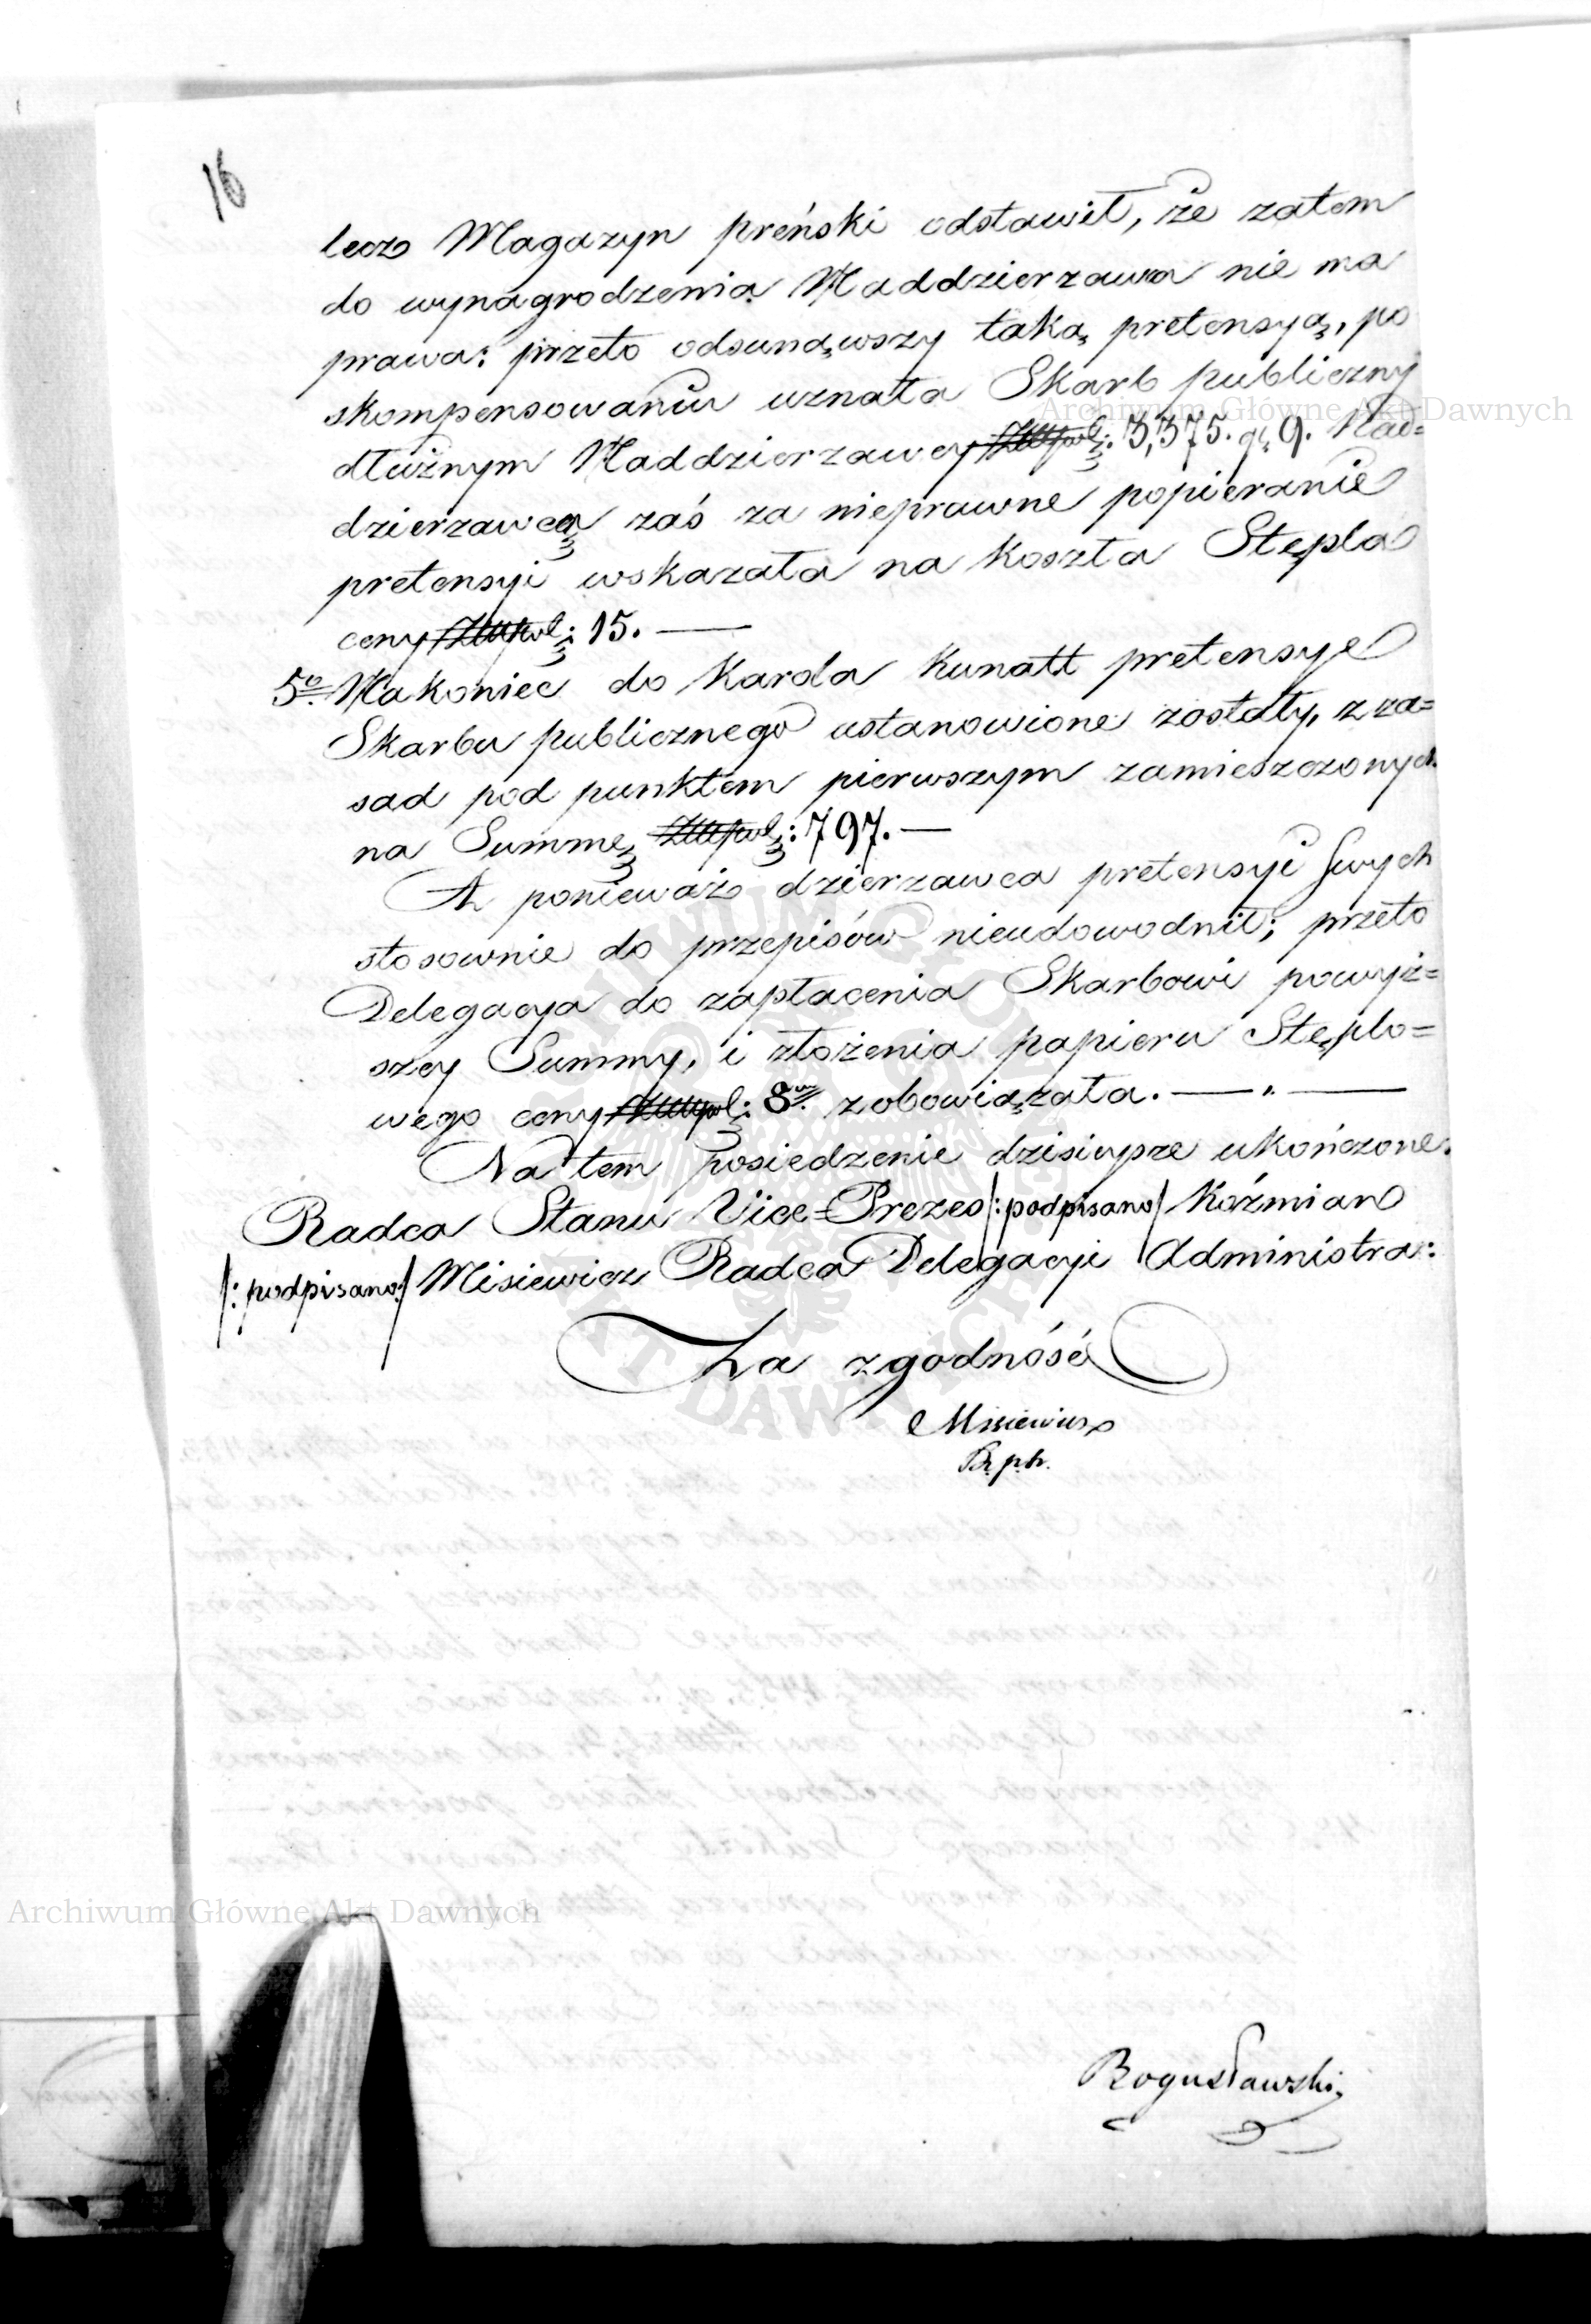 16
lecz Magazyn preński odstawił, że zatem
do wynagrodzenia Naddzierzawca nie ma
prawa: przeto odsunąwszy taką pretensyą, po
skompensowaniu uznała Skarb publiczny
Archiwum Główne Akt Dawnych
dłużnym Naddzierzawcy Złłpol: 3,375. gr 9. Nad=
dzierzawcą zaś za nieprawne popieranie
pretensyi wskazała na koszta Stępla
ceny Złłpol: 15. —
5to. Nakoniec do Karola Kunatt pretensye
Skarbu publicznego ustanowione zostały, z za=
sad pod punktem pierwszym zamieszczonych
na Summę Złłpol: 797. —
A ponieważ dzierzawca pretensyi swych
stosownie do przepisów nieudowodnił; przeto
Delegacya do zapłacenia Skarbowi powyż=
szey Summy, i złożenia papieru Stęplo=
wego ceny Złłpol: 8. zobowiązała. — " —
Na tem posiedzenie dzisieysze ukończone.
Radca Stanu Vice=Prezes /:podpisano/ Koźmian
/:podpisano:/ Misiewicz Radca Delegacyi Administra:
Za zgodność
Misiewicz
Archiwum Główne Akt Dawnych
Bogusławski
ARCHIWUM GŁÓWNE AKT DAWNYCH